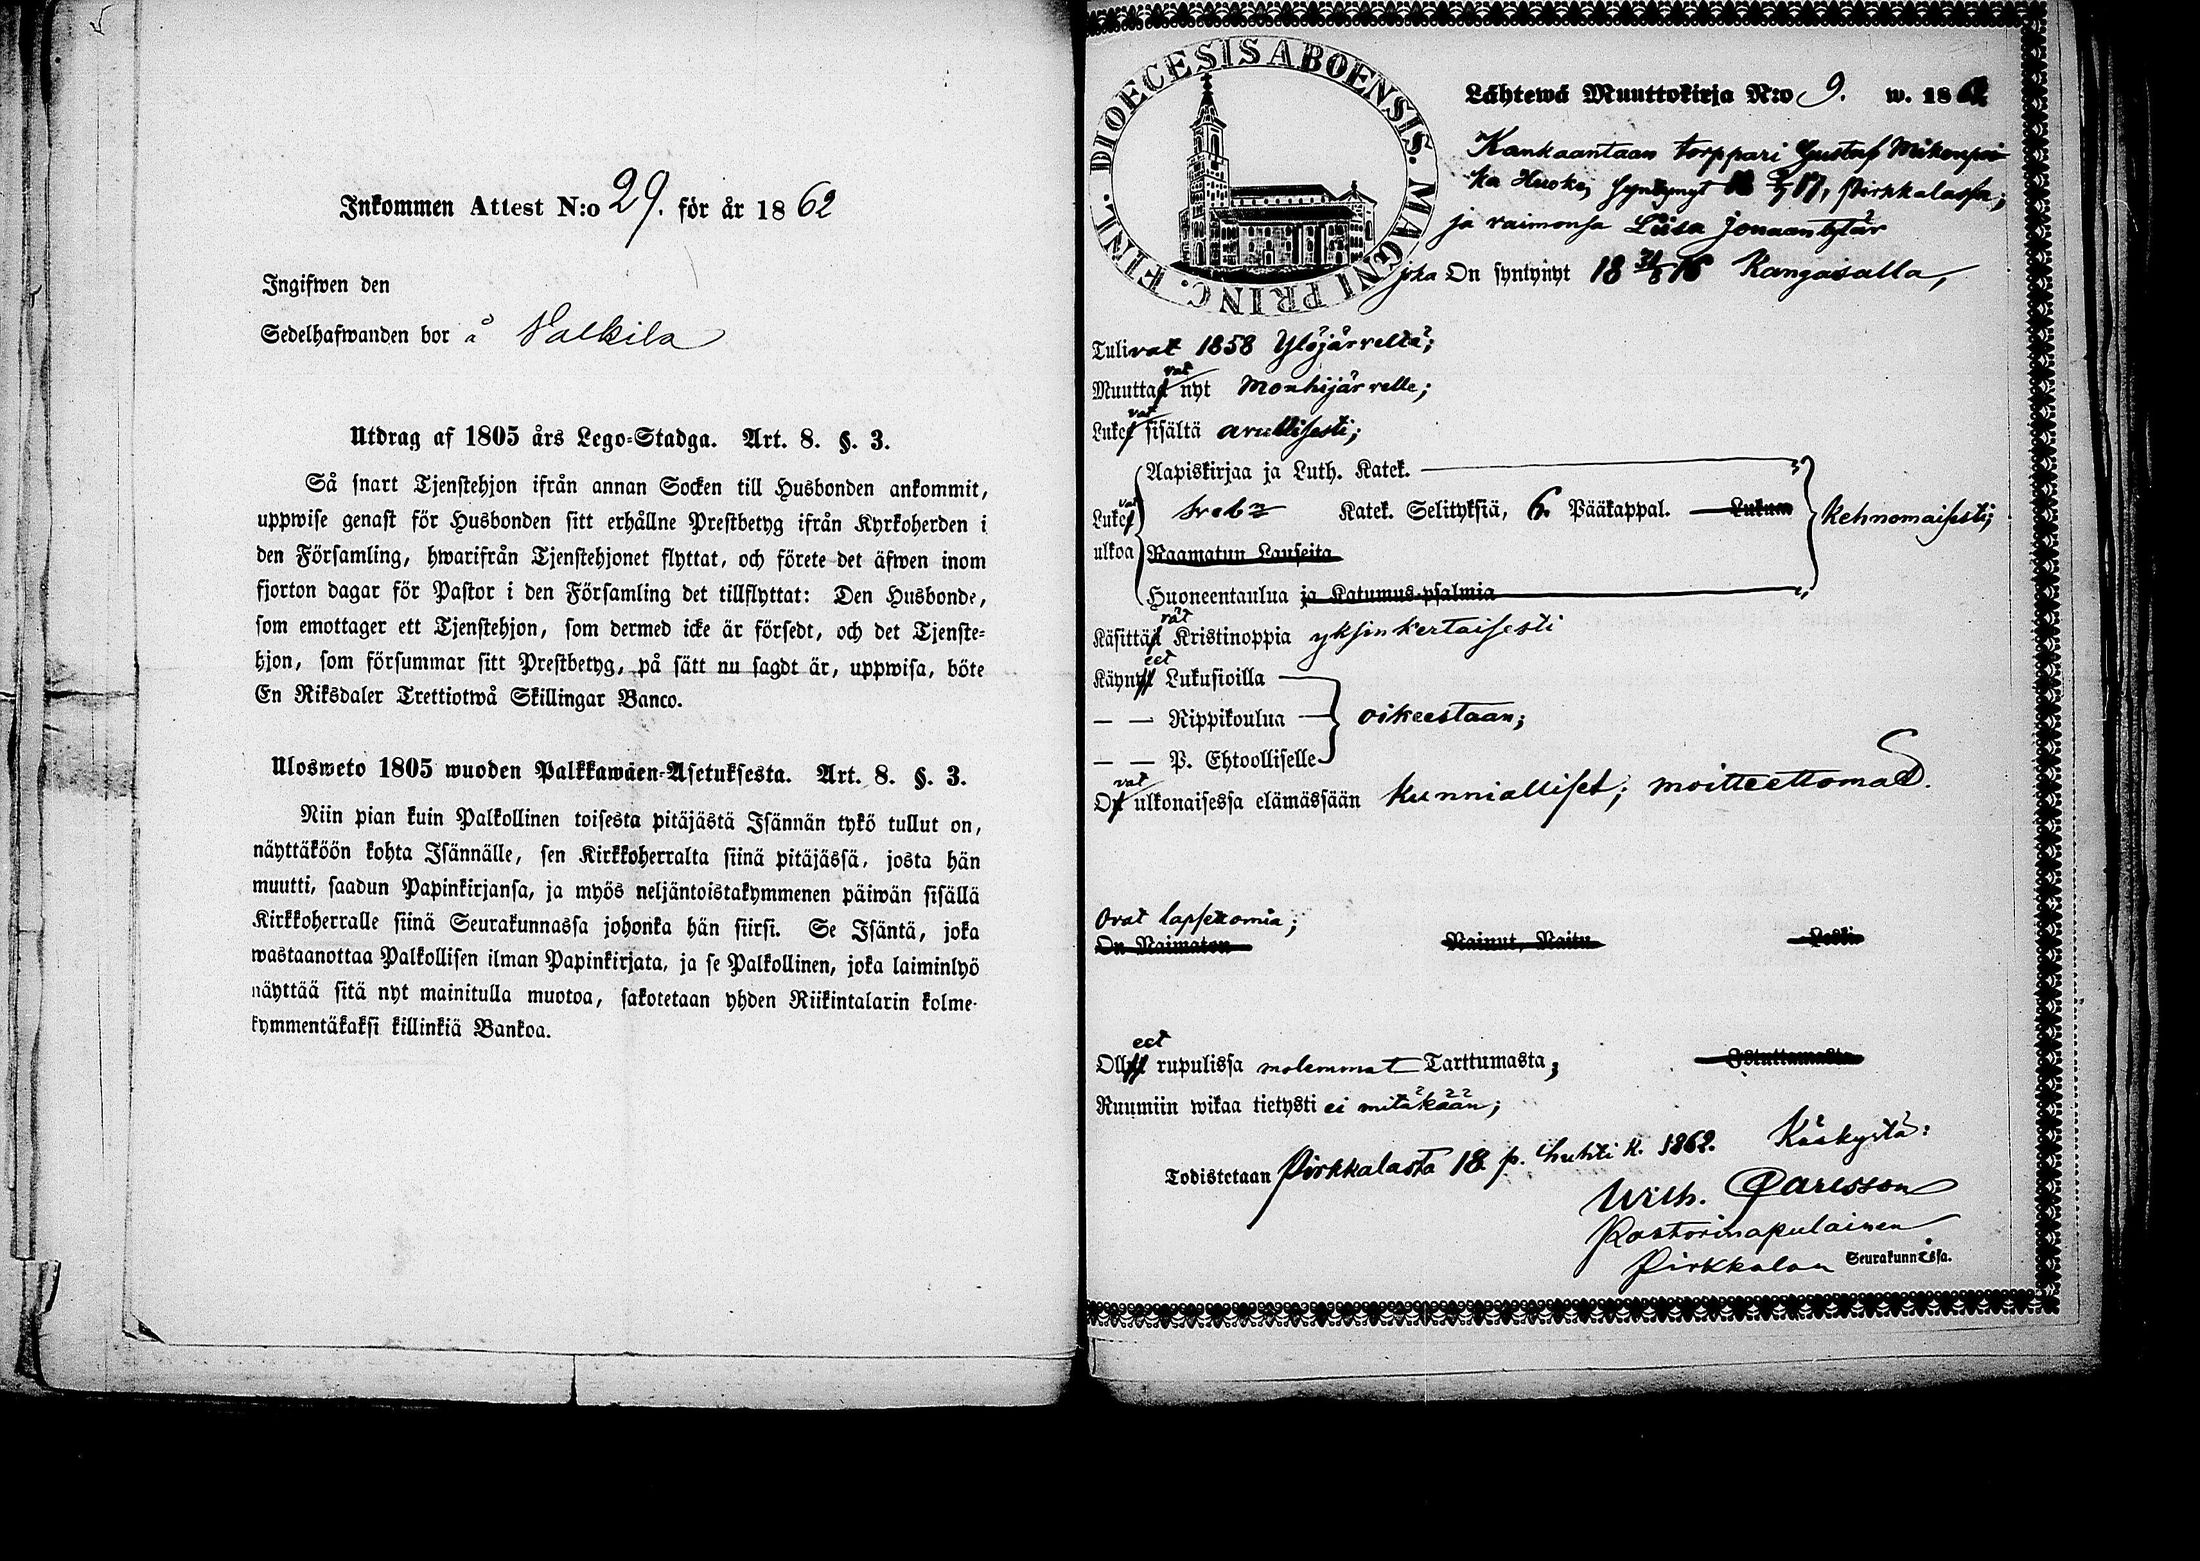 Inkommen Attest N:o 29. för år 1862
Ingifwen den
Sedelhafwanden bor å Valkila
Utdrag af 1805 års Lego-Stadga. Art. 8. §. 3.
Så snart Tjenstehjon ifrån annan Socken till Husbonden ankommit,
uppwise genast för Husbonden sitt erhållne Prestbetyg ifrån Kyrkoherden i
den Församling, hwarifrån Tjenstehjonet flyttat, och förete det äfwen inom
fjorton dagar för Pastor i den Församling det tillflyttat: Den Husbonde,
som emottager ett Tjenstehjon, som dermed icke är försedt, och det Tjenste-
hjon, som försummar sitt Prestbetyg, på sätt nu sagdt är, uppwisa, böte
En Riksdaler Trettiotwå Skillingar Banco.
Ulosweto 1805 wuoden Palkkawäen-Asetuksesta. Art. 8. §. 3.
Niin pian kuin Palkollinen toisesta pitäjästä Isännän tykö tullut on,
näyttäköön kohta Isännälle, sen Kirkkoherralta siinä pitäjässä, josta hän
muutti, saadun Papinkirjansa, ja myös neljäntoistakymmenen päiwän sisällä
Kirkkoherralle siinä Seurakunnassa johonka hän siirsi. Se Isäntä, joka
wastaanottaa Palkollisen ilman Papinkirjata, ja se Palkollinen, joka laiminlyö
näyttää sitä nyt mainitulla muotoa, sakotetaan yhden Riikintalarin kolme-
kymmentäkaksi killinkiä Bankoa.
FINL. DIOECESIS ABOENSIS. MAGNI PRINC.
Lähtewä Muuttokirja N:o 9. w. 1862
Kankaantaan torppari Gustaf Mikonpoi-
ka Huoke, syntynyt 17, Pirkkalassa;
ja vaimonsa Liisa Jonaantytär
joka On syntynyt 18 16 Kangasalla,
Tulivat 1858 Ylöjärveltä;
Muuttavat nyt Mouhijärvelle;
Lukevat sisältä avullisesti;
Aapiskirjaa ja Luth. Katek.
Lukevat Katek. Selityksiä, 6. Pääkappal. Lukuun kehnomaisesti;
ulkoa Raamatun Lauseita
Huoneentaulua ja Katumus-psalmia
Käsittävät Kristinoppia yksinkertaisesti
Käyneet Lukusioilla
— — Rippikoulua oikeestaan;
— — P. Ehtoolliselle
Ovat ulkonaisessa elämässään kunnialliset; moitteettomat.
Ovat lapsettomia;
On Naimaton Nainut, Naitu Leski
Olleet rupulissa molemmat Tarttumasta; Istuttamasta
Ruumiin wikaa tietysti ei mitäkään;
Todistetaan Pirkkalasta 18 p. huhti k. 1862. Käskystä:
Wilh. Carlsson
Pastorinapulainen
Pirkkalan Seurakunnassa.